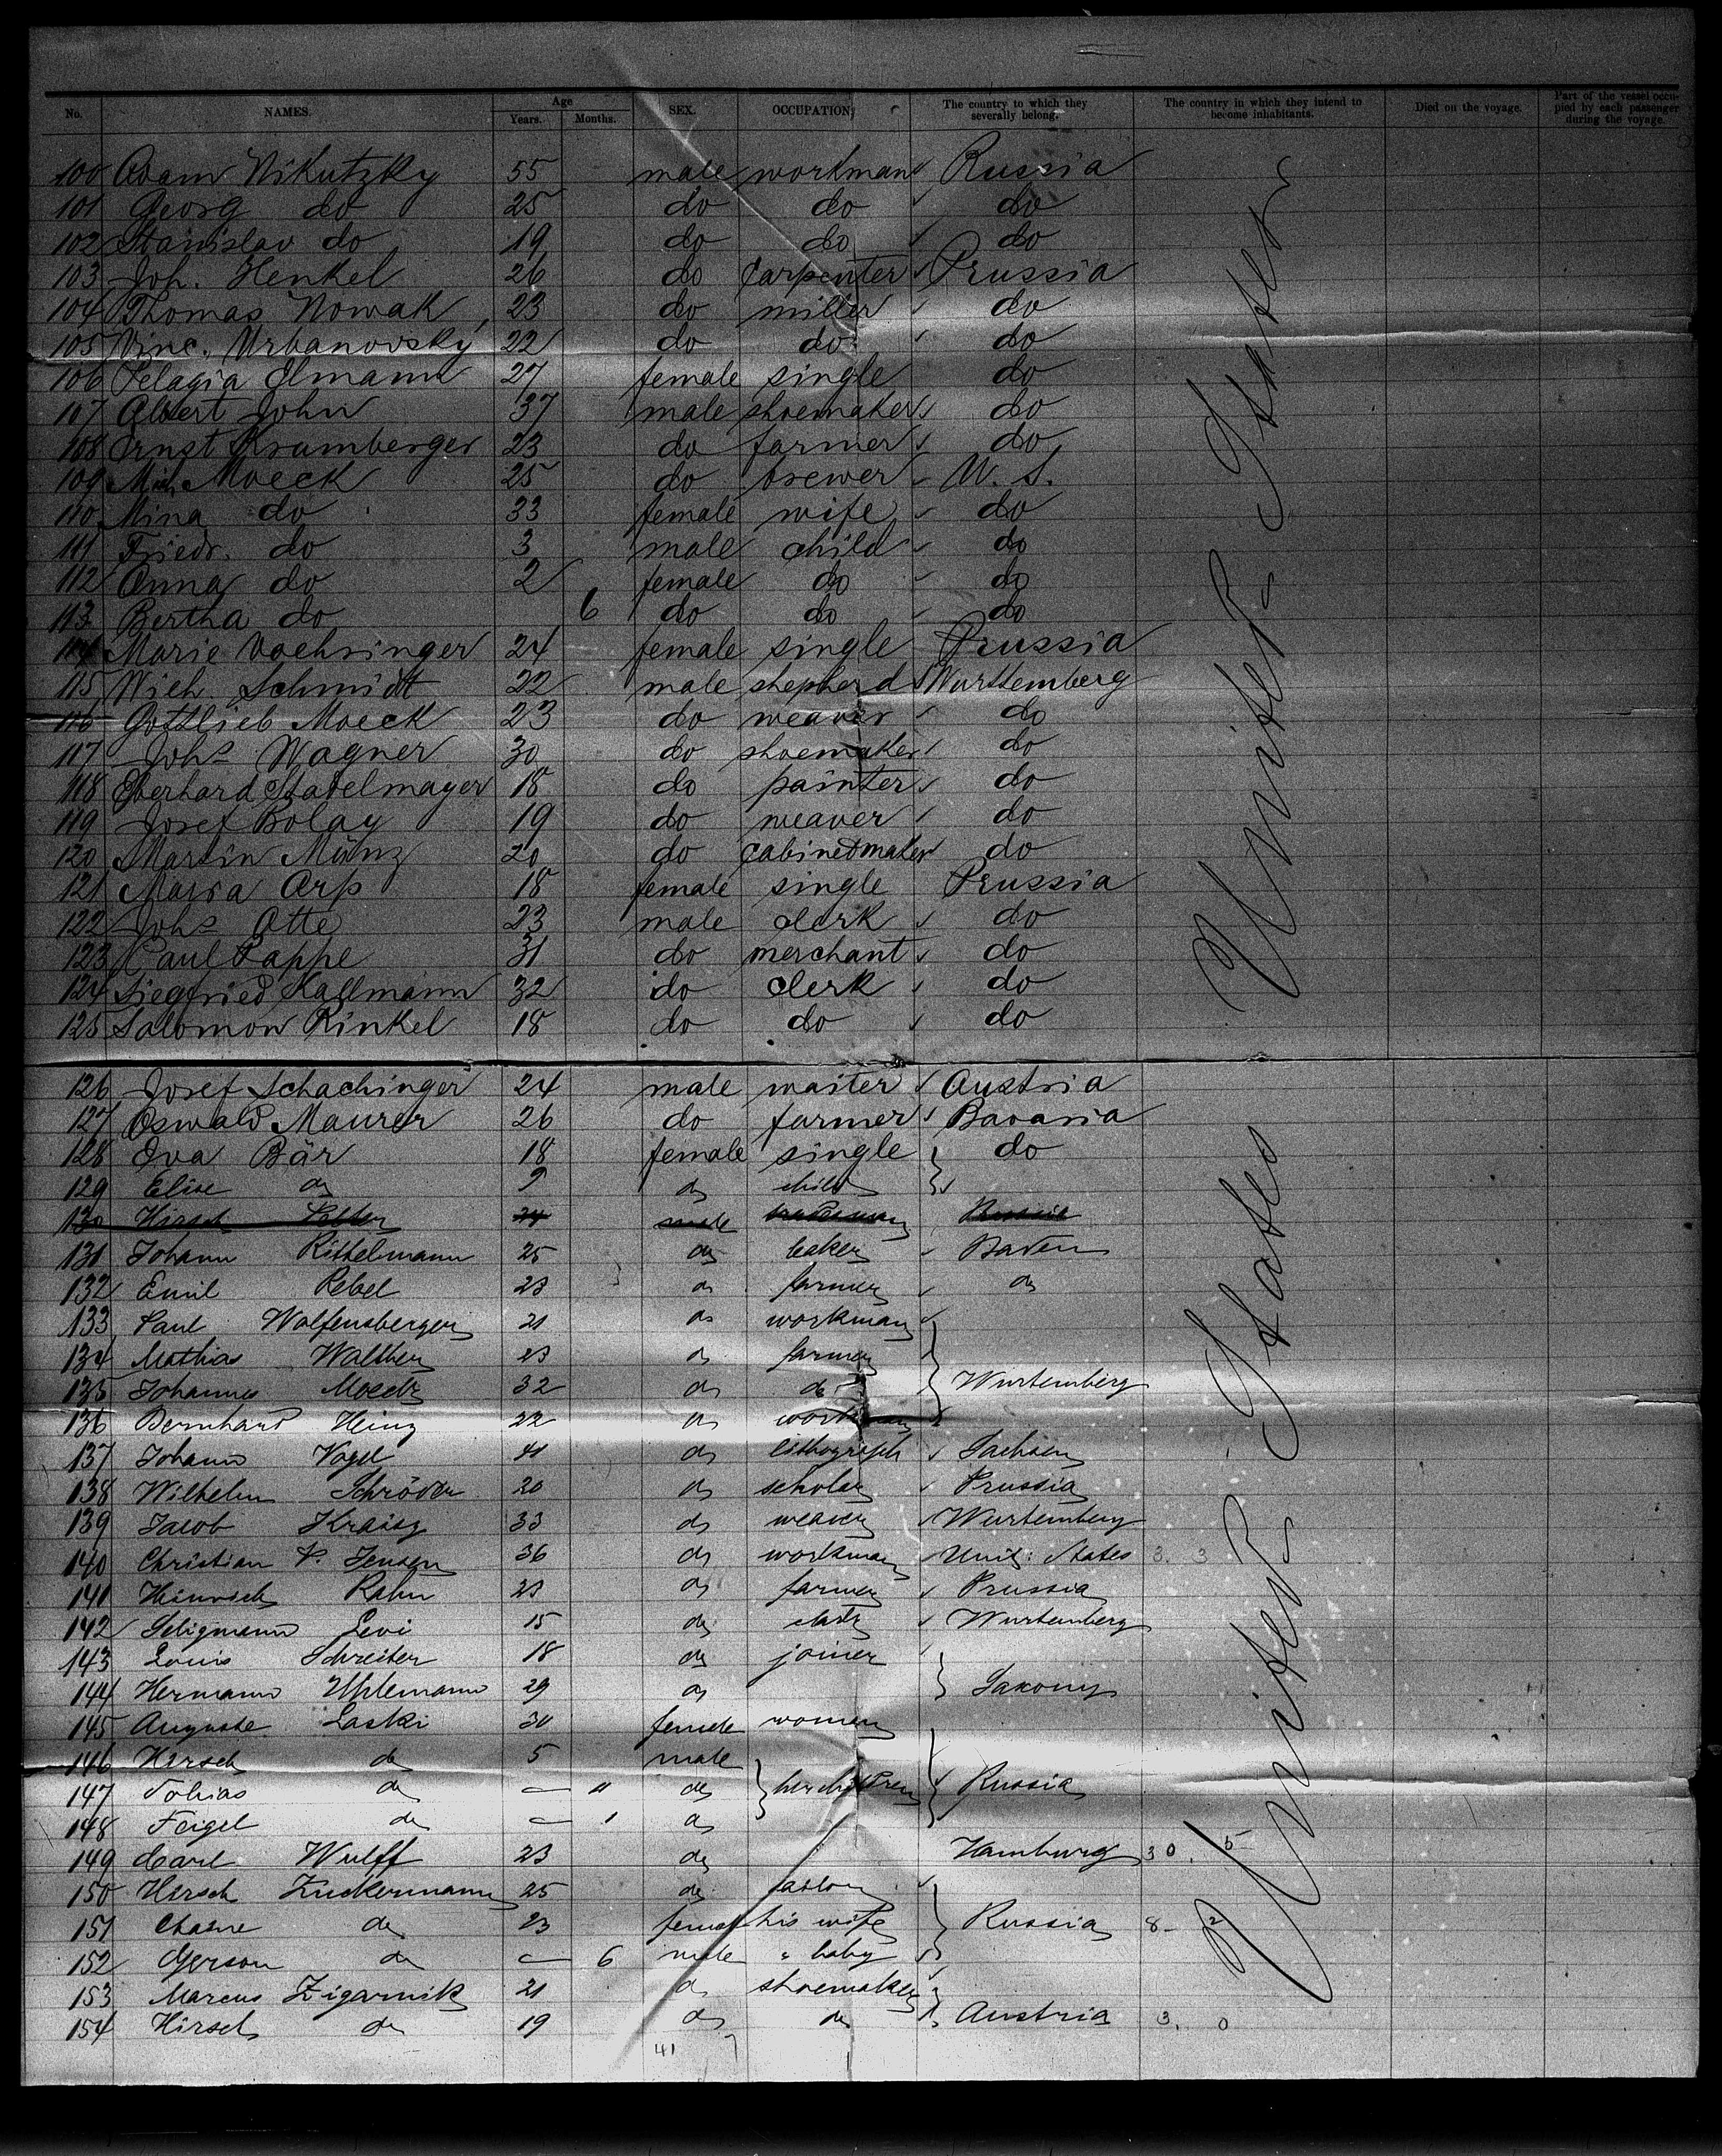 No. NAMES. Age Years. Months. SEX. OCCUPATION. The country to which they severally belong. The country in which they intend to become inhabitants. Died on the voyage. Part of the vessel occupied by each passenger during the voyage.
100 Adam Nikutzky 55 male workman Russia
101 Georg do 25 do do do
102 Stanislav do 19 do do do
103 Joh. Henkel 26 do carpenter Prussia
104 Thomas Nowak 23 do miller do
105 Vinc. Urbanovsky 22 do do do
106 Pelagia Elmann 27 female single do
107 Albert John 37 male shoemaker do
108 Ernst Krumberger 23 do farmer do
109 Mich. Moeck 25 do brewer U. S.
110 Mina do 33 female wife do
111 Friedr. do 3 male child do
112 Anna do 2 female do do
113 Bertha do 6 do do do
114 Marie Voehringer 24 female single Prussia
115 Wilh. Schmidt 22 male shepherd Wurttemberg
116 Gottlieb Moeck 23 do weaver do
117 Johs Wagner 30 do shoemaker do
118 Eberhard Stadelmayer 18 do painter do
119 Josef Bolay 19 do weaver do
120 Martin Münz 20 do cabinetmaker do
121 Maria Arp 18 female single Prussia
122 Johs Otte 23 male clerk do
123 Paul Pappe 31 do merchant do
124 Siegfried Kallmann 32 do clerk do
125 Salomon Rinkel 18 do do do
United States
126 Josef Schachinger 24 male waiter Austria
127 Oswald Maurer 26 do farmer Bavaria
128 Eva Bär 18 female single do
129 Elise do 9 do child
130 Hirsch 24 male tradesman Russia
131 Johann Rittelmann 25 do baker Baden
132 Emil Rebel 23 do farmer do
133 Paul Wolfensberger 21 do workman
134 Mathias Walther 23 do farmer
135 Johannes Moeck 32 do do Wurtemberg
136 Bernhard Heinz 22 do workman
137 Johann Vogel 41 do lithograph Sachsen
138 Wilhelm Schröder 20 do scholar Prussia
139 Jacob Kraisz 33 do weaver Wurtemberg
140 Christian P. Jensen 36 do workman Unit: States 3. 3
141 Heinrich Rahn 23 do farmer Prussia
142 Seligmann Levi 15 do clerk Wurtemberg
143 Louis Schreiter 18 do joiner
144 Hermann Uhlemann 29 do Saxony
145 Auguste Laski 30 female woman
146 Hirsch do 5 male
147 Tobias do — 11 do her children Russia
148 Feigel do — 1 do
149 Carl Wulff 23 do Hamburg 30. 5
150 Hirsch Zuckermann 25 do tailor
151 Chasne do 23 female his wife Russia 8- 2
152 Gerson do — 6 male " baby
153 Marcus Zigarnik 21 do shoemaker
154 Hirsch do 19 do do Austria 3. 0
United States
41